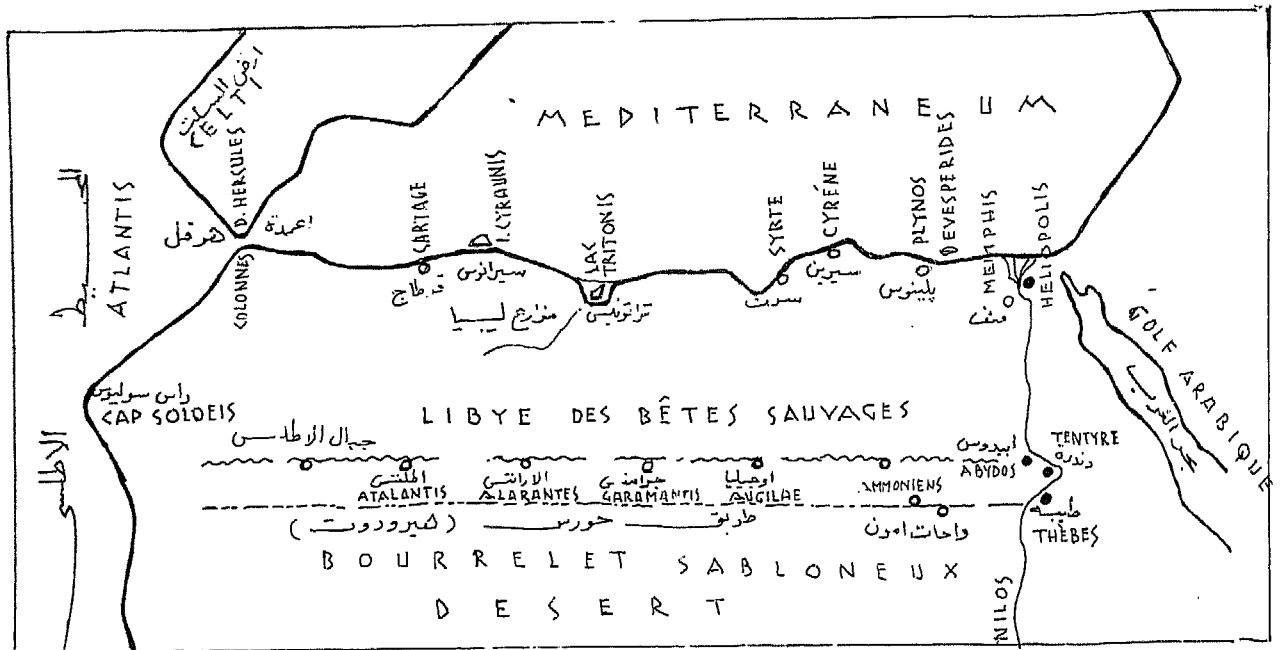 ارض السلت
CELTI
MEDITERRANEUM
المحيط
ATLANTIS
D. HERCULES
COLONNES
اعمدة
هرقل
CARTAGE
قرطاج
I. CYRAUNIS
سيرانوس
LAC TRITONIS
تراتونيس
مزارع ليبيا
SYRTE
سرت
CYRÈNE
سيرين
PLYNOS
پلينوس
DEVESPERIDES
MEMPHIS
منف
HELIOPOLIS
GOLF ARABIQUE
بحر الغرب
راس سوليوس
CAP SOLOEIS
الاطلسي
LIBYE DES BÊTES SAUVAGES
جبال الاطلس
ATALANTIS
الارانتس
ALARANTES
GARAMANTIS
اوجيليا
AUGILAE
AMMONIENS
واحات امون
ابيدوس
ABYDOS
TENTYRE
دندرة
طيبة
THÈBES
طريق حورس (هيرودوت)
BOURRELET SABLONEUX
DESERT
NILOS